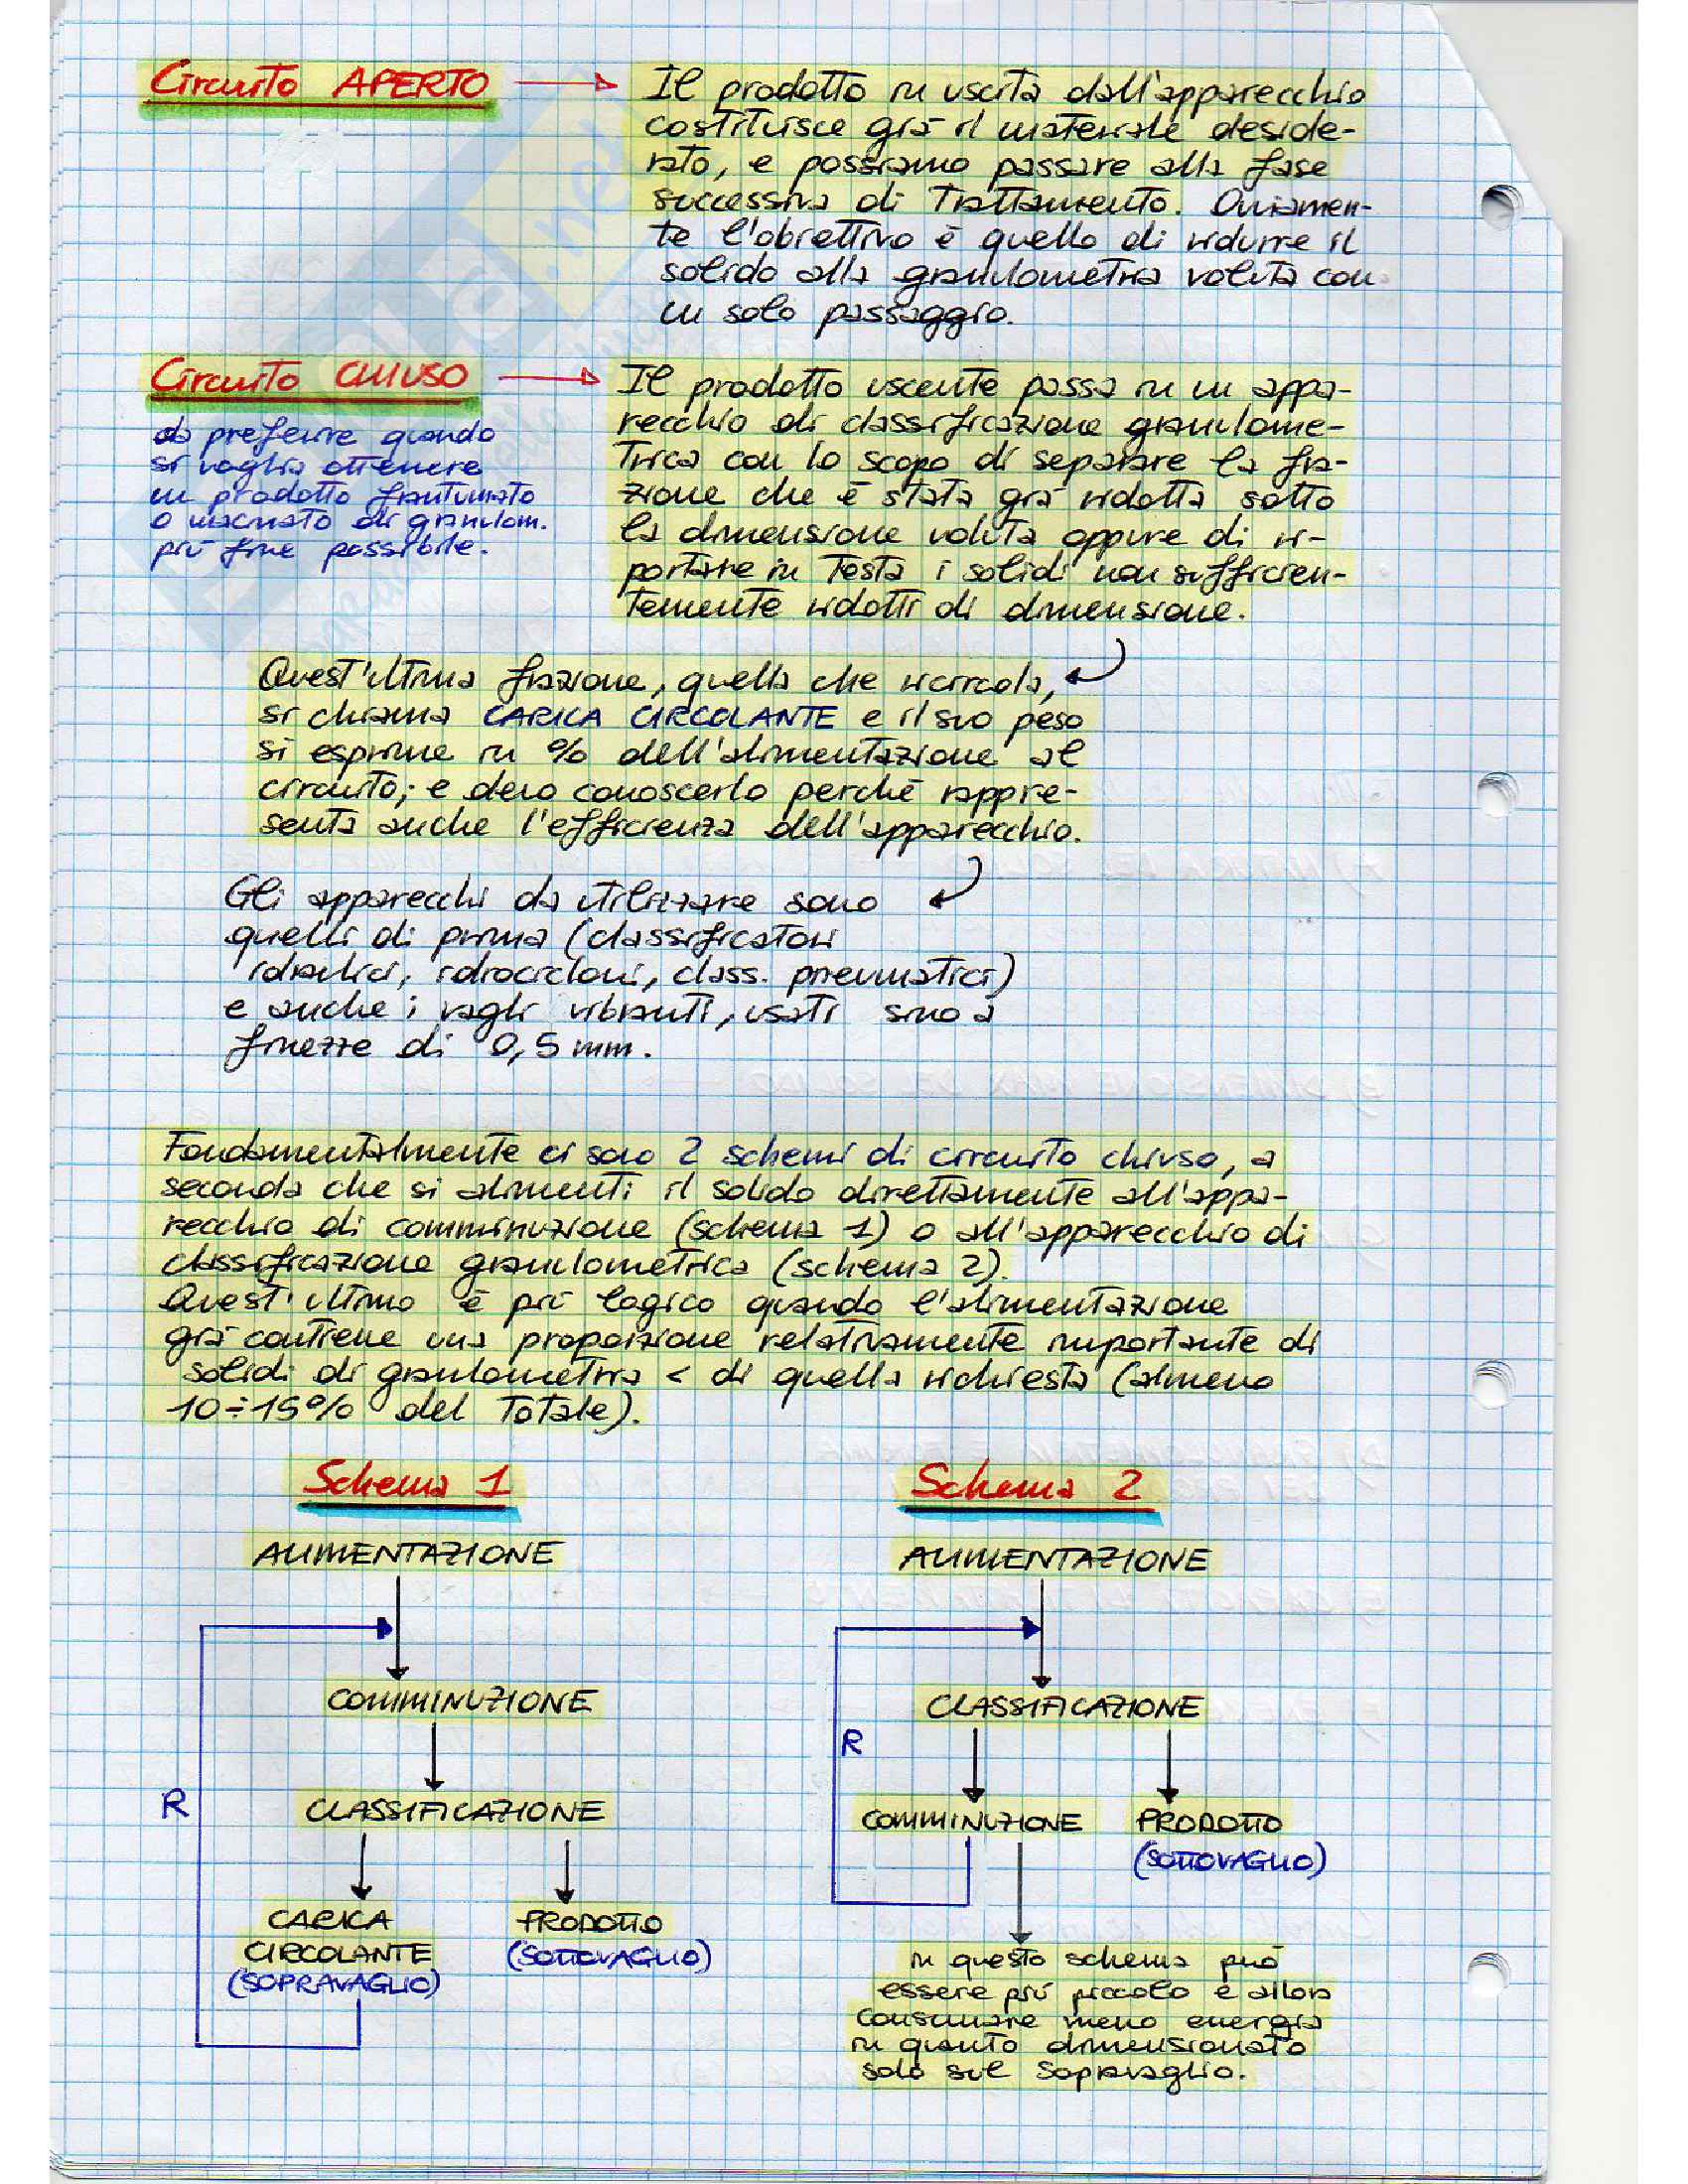 Circuito APERTO
Il prodotto in uscita dall'apparecchio
costituisce già il materiale deside-
rato, e possiamo passare alla fase
successiva di trattamento. Ovviamen-
te l'obiettivo è quello di ridurre il
solido alla granulometria voluta con
un solo passaggio.
Circuito CHIUSO
da preferire quando
si voglia ottenere
un prodotto frantumato
o macinato di granulom.
più fine possibile.
Il prodotto uscente passa in un appa-
recchio di classificazione granulome-
trica con lo scopo di separare la fra-
zione che è stata già ridotta sotto
la dimensione voluta oppure di ri-
portare in testa i solidi non sufficien-
temente ridotti di dimensione.
Quest'ultima frazione, quella che ricircola,
si chiama CARICA CIRCOLANTE e il suo peso
si esprime in % dell'alimentazione al
circuito; e devo conoscerlo perchè rappre-
senta anche l'efficienza dell'apparecchio.
Gli apparecchi da utilizzare sono
quelli di prima (classificatori
idraulici, idrocicloni, class. pneumatici)
e anche i vagli vibranti, usati sino a
finezze di 0,5 mm.
Fondamentalmente ci sono 2 schemi di circuito chiuso, a
seconda che si alimenti il solido direttamente all'appa-
recchio di comminuzione (schema 1) o all'apparecchio di
classificazione granulometrica (schema 2).
Quest'ultimo è più logico quando l'alimentazione
già contiene una proporzione relativamente importante di
solidi di granulometria < di quella richiesta (almeno
10÷15% del totale).
Schema 1
ALIMENTAZIONE
COMMINUZIONE
R
CLASSIFICAZIONE
CARICA
CIRCOLANTE
(SOPRAVAGLIO)
PRODOTTO
(SOTTOVAGLIO)
Schema 2
ALIMENTAZIONE
CLASSIFICAZIONE
R
COMMINUZIONE
PRODOTTO
(SOTTOVAGLIO)
in questo schema può
essere più piccolo e allora
consumare meno energia
in quanto dimensionato
solo sul sopravaglio.